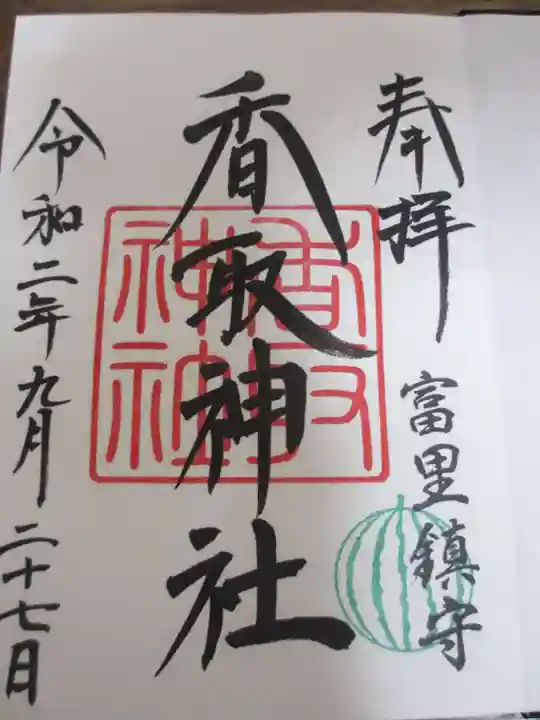 奉拝
富里鎮守
香取神社
香取
神社
令和二年九月二十七日